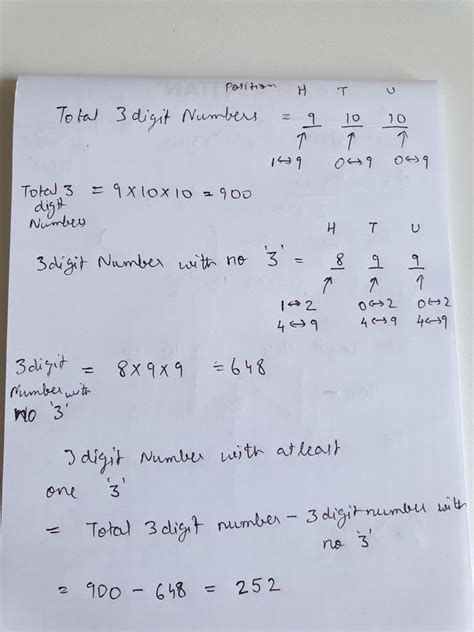 Position H T U
Total 3 digit Numbers = 9 10 10
↑ ↑ ↑
1↔9 0↔9 0↔9
Total 3 digit Numbers = 9×10×10 = 900
H T U
3digit Number with no '3' = 8 9 9
↑ ↑ ↑
1↔2 0↔2 0↔2
4↔9 4↔9 4↔9
3digit Number with no '3' = 8×9×9 = 648
3digit Number with atleast
one '3'
= Total 3digit number - 3digit number with
no '3'
= 900 - 648 = 252